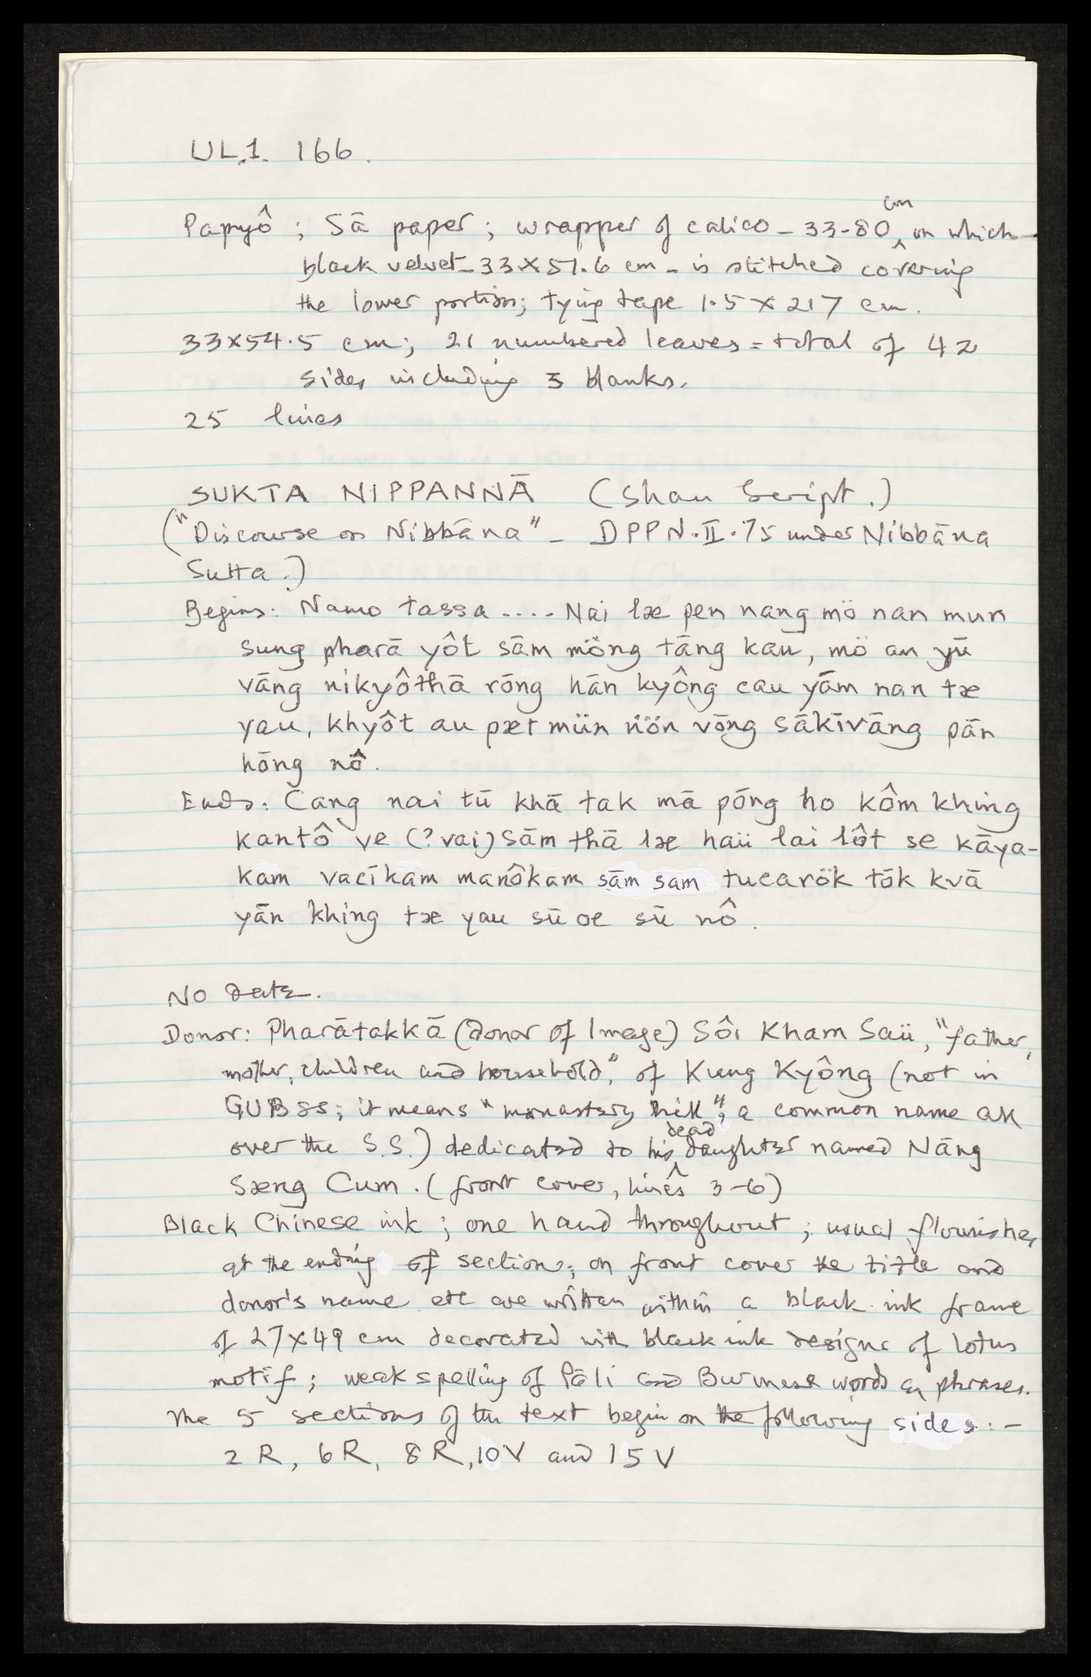 UL.1. 166.
Papyô ; Sā paper ; wrapper of calico – 33-80 cm on which
black velvet – 33×51.6 cm – is stitched covering
the lower portion; tying tape 1.5 × 217 cm.
33×54.5 cm; 21 numbered leaves = total of 42
sides including 3 blanks.
25 lines
SUKTA NIPPANNĀ (Shan Script.)
("Discourse on Nibbāna" – DPPN.II.75 under Nibbāna
Sutta.)
Begins: Namo tassa .... Nai læ pen nang mö nan mun
sung pharā yôt sām möng tāng kau, mö an yū
vāng nikyôthā rōng hān kyông cau yām nan tæ
yau, khyôt au pæt mün nön vōng sākīvāng pān
hōng nô.
Ends: Cang nai tū khā tak mā pōng ho kôm khing
kantô ve (? vai) sām thā læ haü lai lôt se kāya-
kam vacīkam manôkam sām sam tucarök tōk kvā
yān khing tæ yau sū oe sū nô.
No date.
Donor: Pharātakkā (donor of Image) Sôi Kham Saü, "father,
mother, children and household," of Kung Kyông (not in
GUBSS; it means "monastery hill"; a common name all
over the S.S.) dedicated to his dead daughter named Nāng
Sæng Cum. (front cover, lines 3-6)
Black Chinese ink ; one hand throughout ; usual flourishes
at the ending of sections; on front cover the title and
donor's name etc are written within a black ink frame
of 27×49 cm decorated with black ink designs of lotus
motif ; weak spelling of Pāli and Burmese words & phrases.
The 5 sections of the text begin on the following sides :–
2 R, 6 R, 8 R, 10 V and 15 V